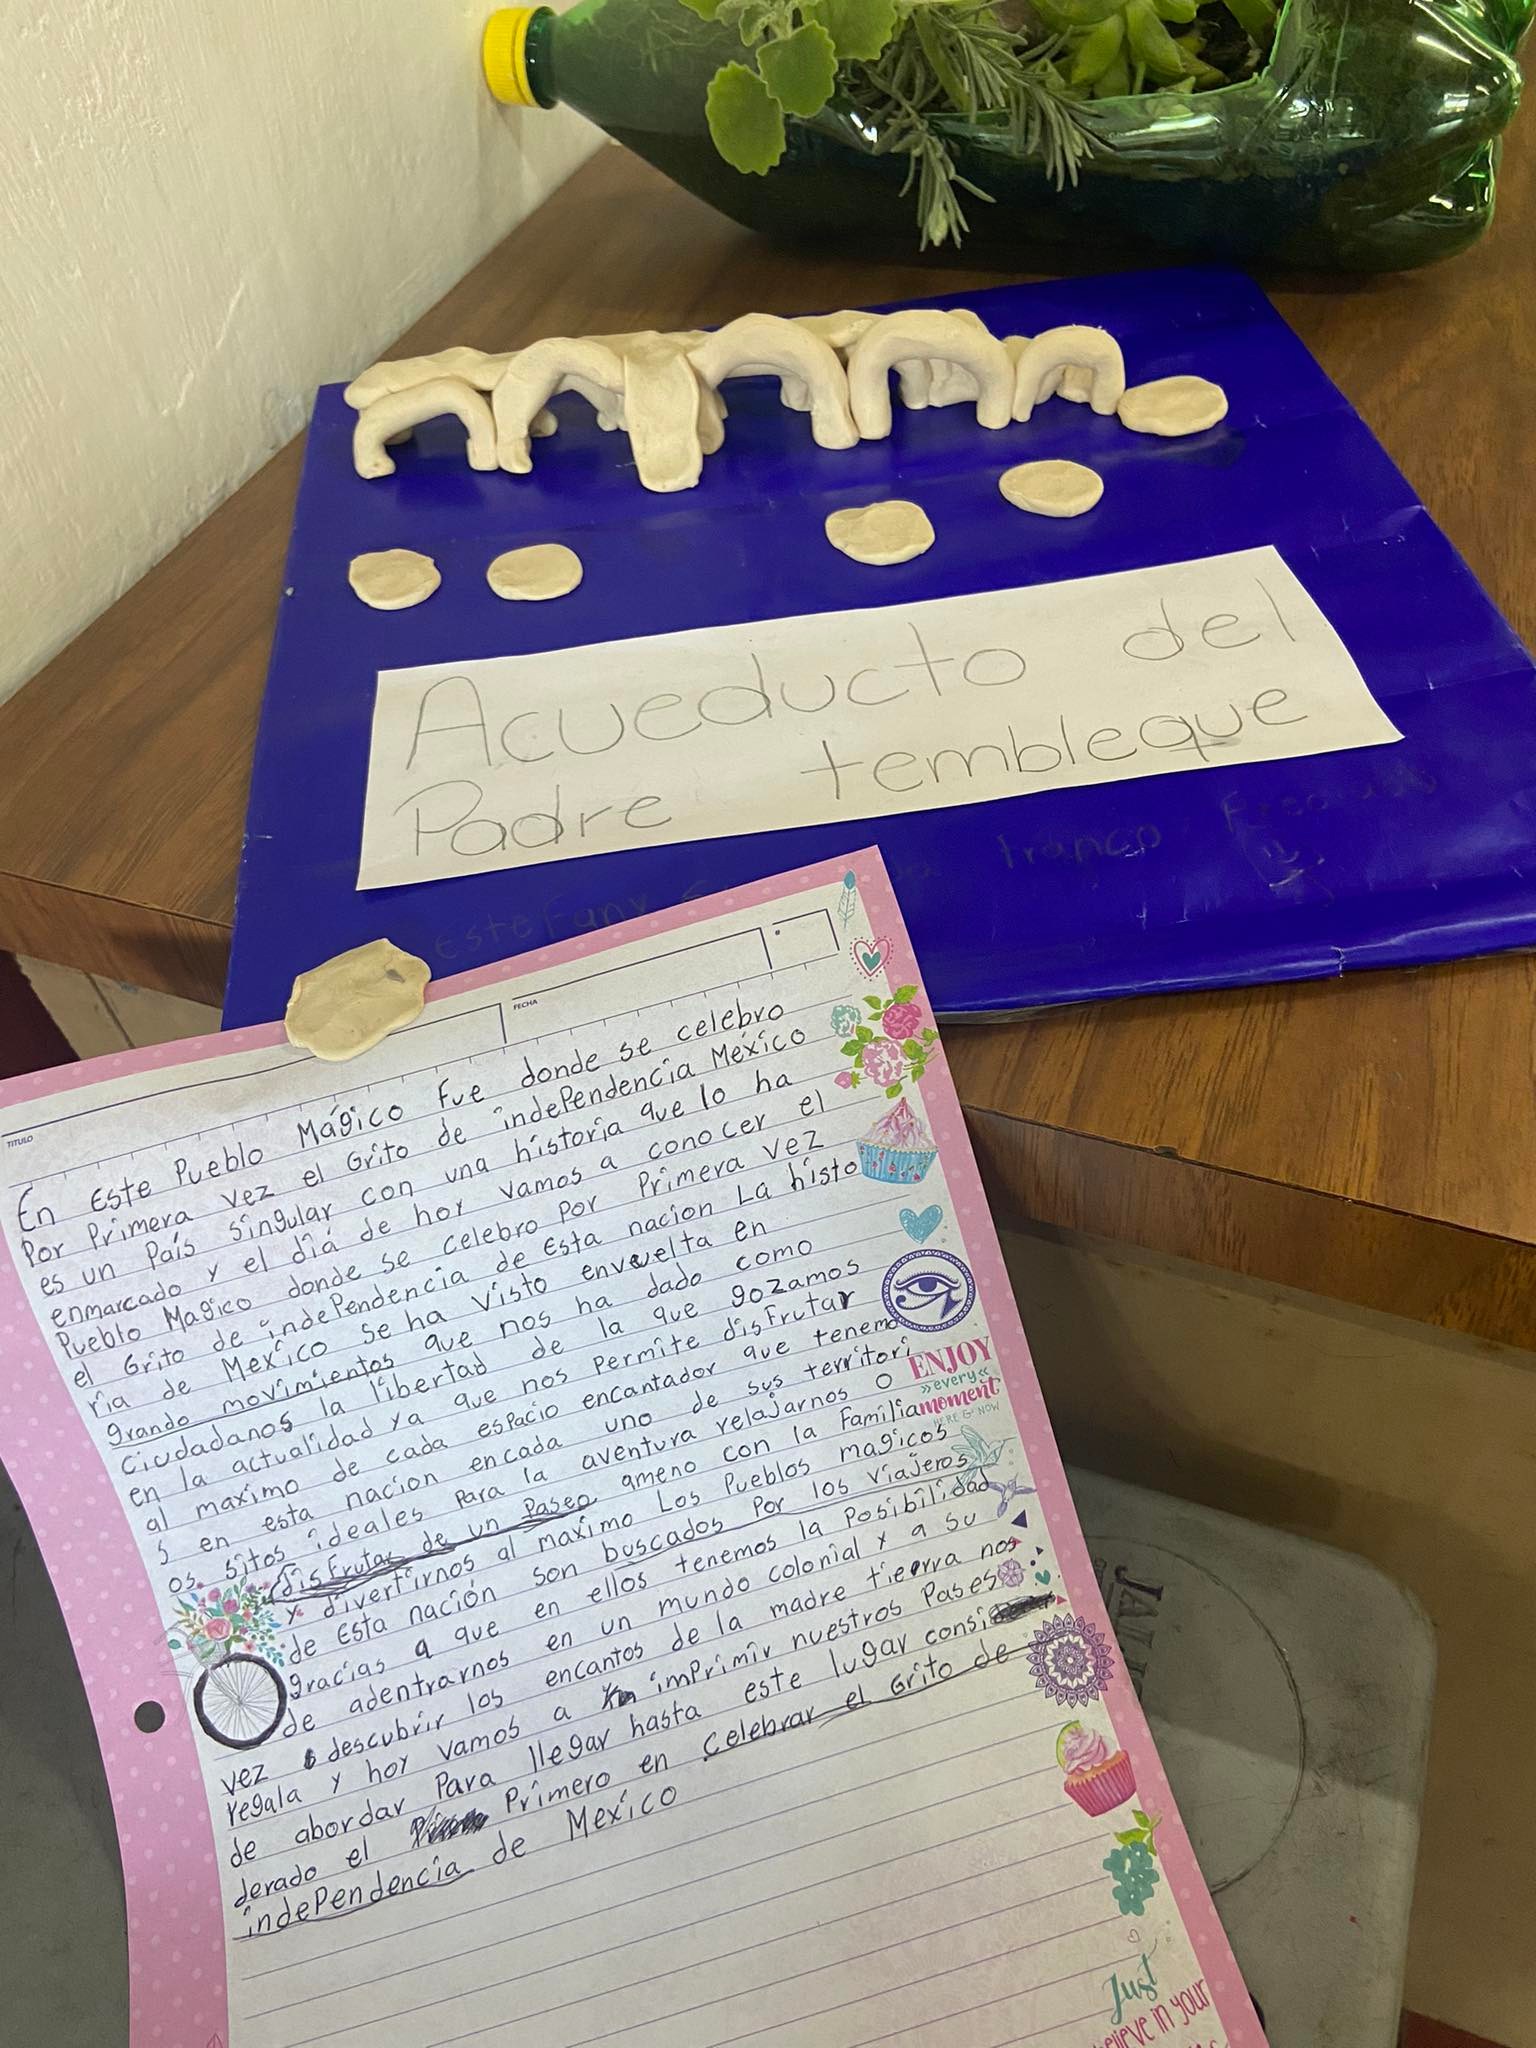 Acueducto del
Padre tembleque
Estefany
franco
FECHA
TITULO
En Este Pueblo Mágico Fue donde se celebro
Por Primera vez el Grito de independencia México
es un País singular con una historia que lo ha
enmarcado y el día de hoy vamos a conocer el
Pueblo Magico donde se celebro por Primera vez
el Grito de independencia de Esta nacion La histo
ria de Mexico se ha Visto envuelta en
grando movimientos que nos ha dado como
ciudadanos la libertad de la que gozamos
en la actualidad ya que nos Permite disfrutar
al maximo de cada espacio encantador que tenemo
s en esta nacion encada uno de sus territori
os. sitos ideales para la aventura relajarnos o
disfrutar de un Paseo ameno con la Familia
y divertirnos al maximo Los Pueblos magicos
de Esta nación son buscados Por los viajeros
gracias a que en ellos tenemos la Posibilidad
de adentrarnos en un mundo colonial y a su
vez descubrir los encantos de la madre tierra nos
regala y hoy vamos a imprimir nuestros Pases
de abordar Para llegar hasta este lugar consi
derado el Primero en celebrar el Grito de
independencia de Mexico
ENJOY
»every«
moment
HERE & NOW
Just
believe in your